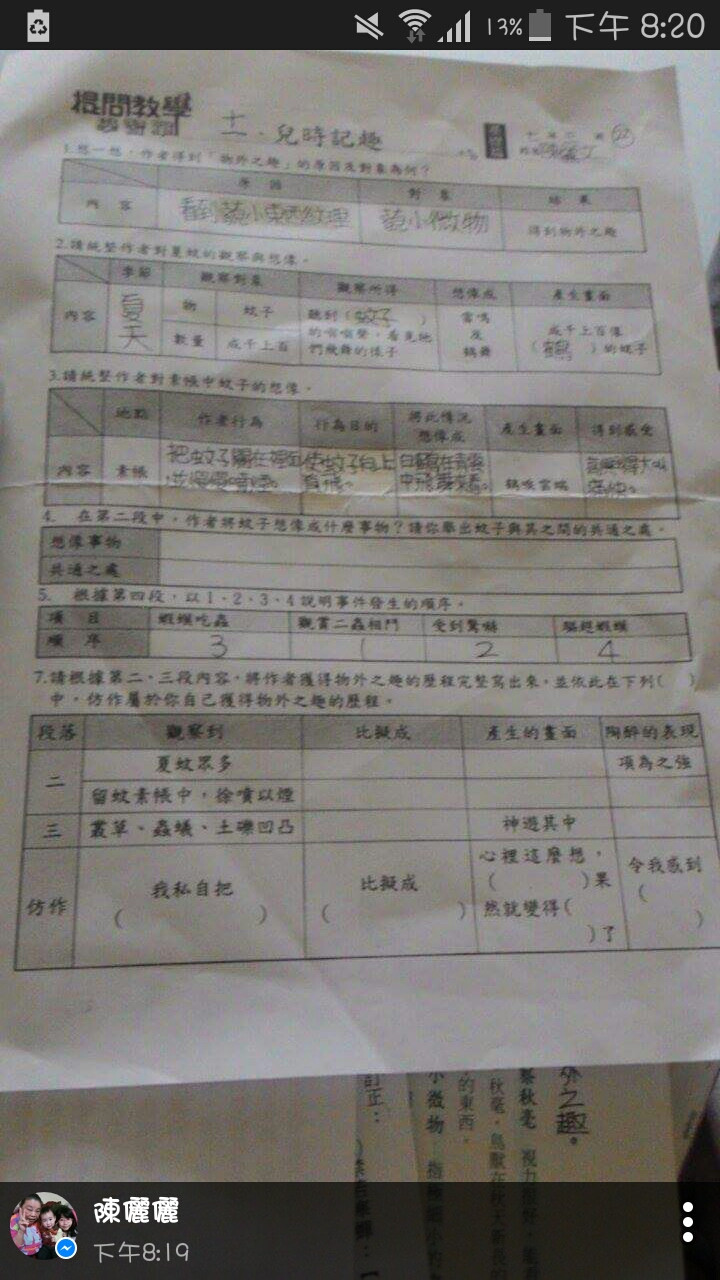 13% 下午 8:20
提問教學
學習單 十一、兒時記趣
1.想一想，作者得到「物外之趣」的原因及對象為何？
原因 對象 結果
內容 看到藐小東西紋理 藐小微物 得到物外之趣
2.請統整作者對夏蚊的觀察與想像。
季節 觀察對象 觀察所得 想像成 產生畫面
內容 夏天 物 蚊子 聽到（蚊子）的嗡嗡聲，看見牠們飛舞的樣子 當鳴及鶴舞 成千上百像（鶴）的蚊子
數量 成千上百
3.請統整作者對素帳中蚊子的想像。
地點 作者行為 行為目的 將此情況想像成 產生畫面 得到感受
內容 素帳 把蚊子關在裡面並慢慢噴煙。 使蚊子向上直飛。 鶴唳雲端
4. 在第二段中，作者將蚊子想像成什麼事物？請你舉出蚊子與其之間的共通之處。
想像事物
共通之處
5. 根據第四段，以1、2、3、4說明事件發生的順序。
項目 蝦蟆吃蟲 觀賞二蟲相鬥 受到驚嚇 驅趕蝦蟆
順序 3 1 2 4
7.請根據第二、三段內容，將作者獲得物外之趣的歷程完整寫出來，並依此在下列( )
中，仿作屬於你自己獲得物外之趣的歷程。
段落 觀察到 比擬成 產生的畫面 陶醉的表現
二 夏蚊眾多 項為之強
留蚊素帳中，徐噴以煙
三 叢草、蟲蟻、土礫凹凸 神遊其中
仿作 我私自把( ) 比擬成( ) 心裡這麼想，( )果然就變得( )了 令我感到( )
外之趣。
察秋毫 視力很好，能看
秋毫，鳥獸在秋天新長的
的東西。
小微物 指極細小的
訂正：
陳儷儷
下午8:19